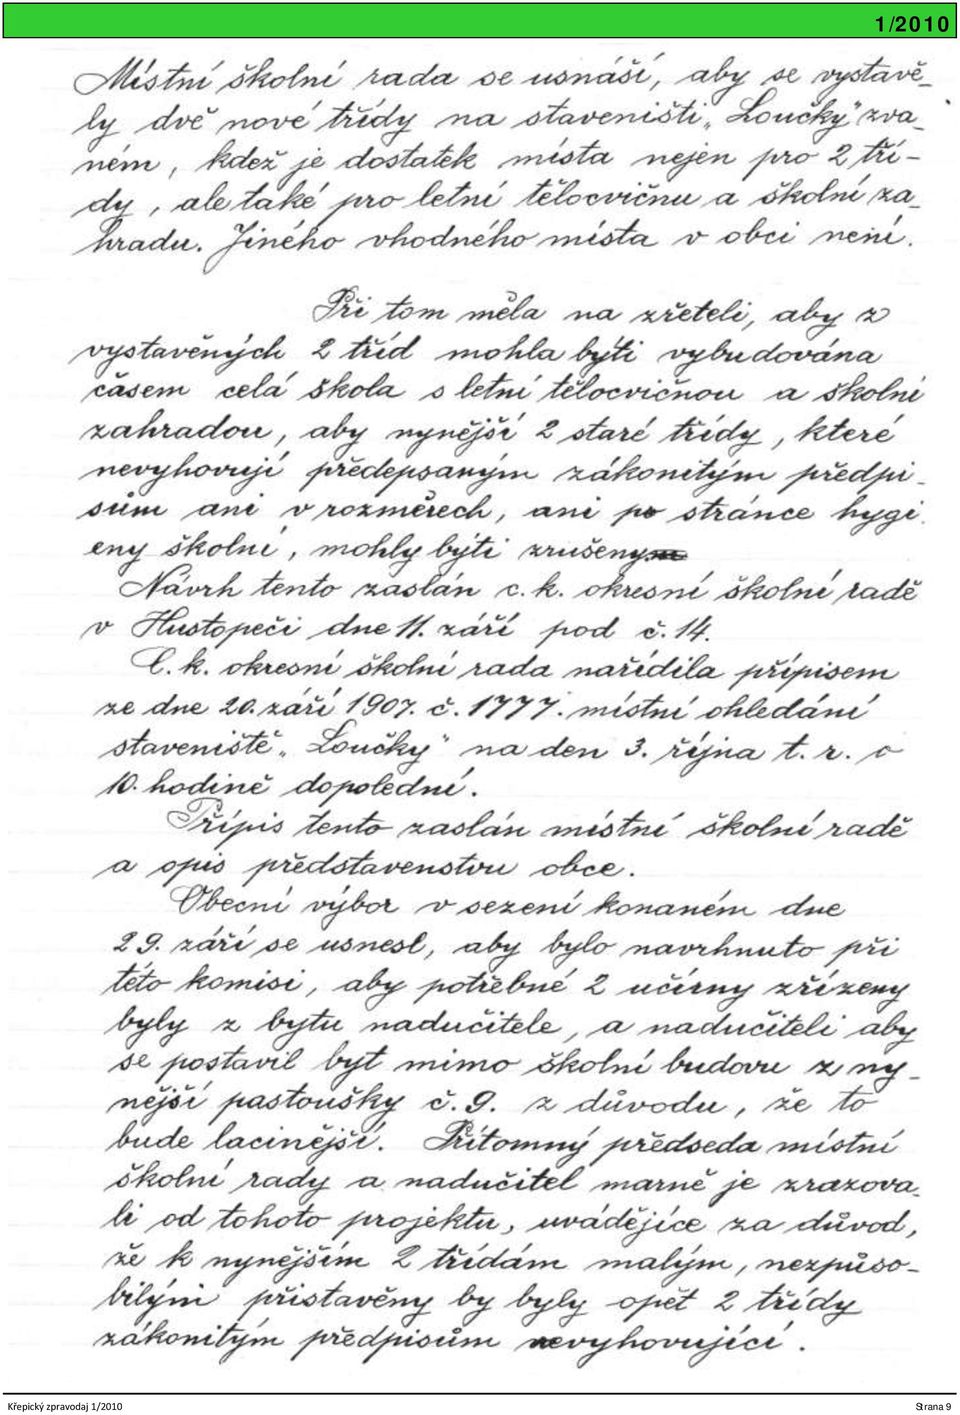 1/2010
Místní školní rada se usnáší, aby se vystavě-
ly dvě nové třídy na staveništi „Loučky" zva-
ném, kdež je dostatek místa nejen pro 2 tří-
dy, ale také pro letní tělocvičnu a školní za-
hradu. Jiného vhodného místa v obci není.
Při tom měla na zřeteli, aby z
vystavěných 2 tříd mohla býti vybudována
časem celá škola s letní tělocvičnou a školní
zahradou, aby nynější 2 staré třídy, které
nevyhovují předepsaným zákonitým předpi-
sům ani v rozměrech, ani po stránce hygi-
eny školní, mohly býti zrušeny.
Návrh tento zaslán c. k. okresní školní radě
v Hustopeči dne 11. září pod č. 14.
C. k. okresní školní rada nařídila přípisem
ze dne 20. září 1907. č. 1777. místní ohledání
staveniště „Loučky" na den 3. října t. r. o
10. hodině dopolední.
Přípis tento zaslán místní školní radě
a opis představenstvu obce.
Obecní výbor v sezení konaném dne
29. září se usnesl, aby bylo navrhnuto při
této komisi, aby potřebné 2 učírny zřízeny
byly z bytu nadučitele, a nadučiteli aby
se postavil byt mimo školní budovu z ny-
nější pastoušky č. 9. z důvodu, že to
bude lacinější. Přítomný předseda místní
školní rady a nadučitel marně je zrazova-
li od tohoto projektu, uvádějíce za důvod,
že k nynějším 2 třídám malým, nezpůso-
bilým přistavěny by byly opět 2 třídy
zákonitým předpisům nevyhovující.
Křepický zpravodaj 1/2010 Strana 9